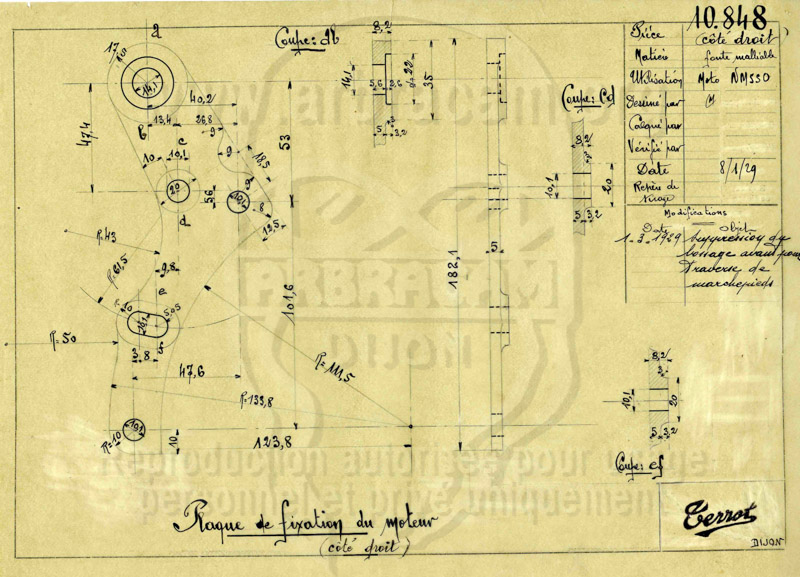 10.848
Pièce (côté droit)
Matière fonte malléable
Utilisation Moto NM550
Dessiné par
Calqué par
Vérifié par
Date 8/1/29
Repère de
Modifications
Date Objet
1-3-1929 Suppression du
bossage avant pour
traverse de
marchepieds
a
17
R
14,1
Coupe: ab
8,2
14,1
5,6 2,6
22
35
5 3,2
3
40,2
b
13,4 26,8
9
c
10 10,1
47,4
53
9
18,5
20
56
10,1
9
8
12,5
d
R=43
R=61,5
9,8
e
R=10
5,05
10,1
f
R=50
3 8
47,6
101,6
R=111,5
R=133,8
10,1
R=10
10
123,8
182,1
5
Coupe: cd
8,2
3
10,1
20
5 3,2
8,2
3
10,1
20
5 3,2
Coupe: ef
Plaque de fixation du moteur
(côté droit)
Terrot
DIJON
ARBRACAM
DIJON
Reproduction autorisée pour usage
personnel et privé uniquement